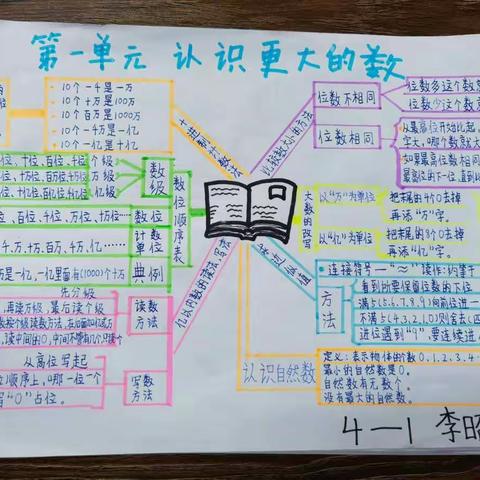 第一单元 认识更大的数
10个一千是一万
10个十万是100万
10个100万是1000万
10个一千万是一亿
10个一亿是十亿
十进制计数法
位、十位、百位、千位 个级
数级
数位顺序表
位、百位、千位、万位、十万位……
数位
千、万、十万、百万、千万、亿……
计数单位
典例
先分级
再读万级,最后读个级
读数方法
从高位写起
写数方法
写“0”占位。
亿以内数的读法、写法
比较数大小的方法
位数不相同
位数多这个数
位数少这个数
位数相同
从最高位开始比起。
如果最高位数相同
大数的改写
以“万”为单位
把末尾的4个0去掉
再添“万”字。
以“亿”为单位
把末尾的8个0去掉
再添“亿”字。
求近似值
连接符号—“≈”读作:约等于
方法
看到所要保留位数的下位
满5(5、6、7、8、9)向前进一
不满5(4、3、2、1、0)则舍去
进位遇到“9”,要连续进
认识自然数
定义:表示物体的个数0、1、2、3、4
最小的自然数是0。
自然数有无数个。
没有最大的自然数。
4—1 李昭